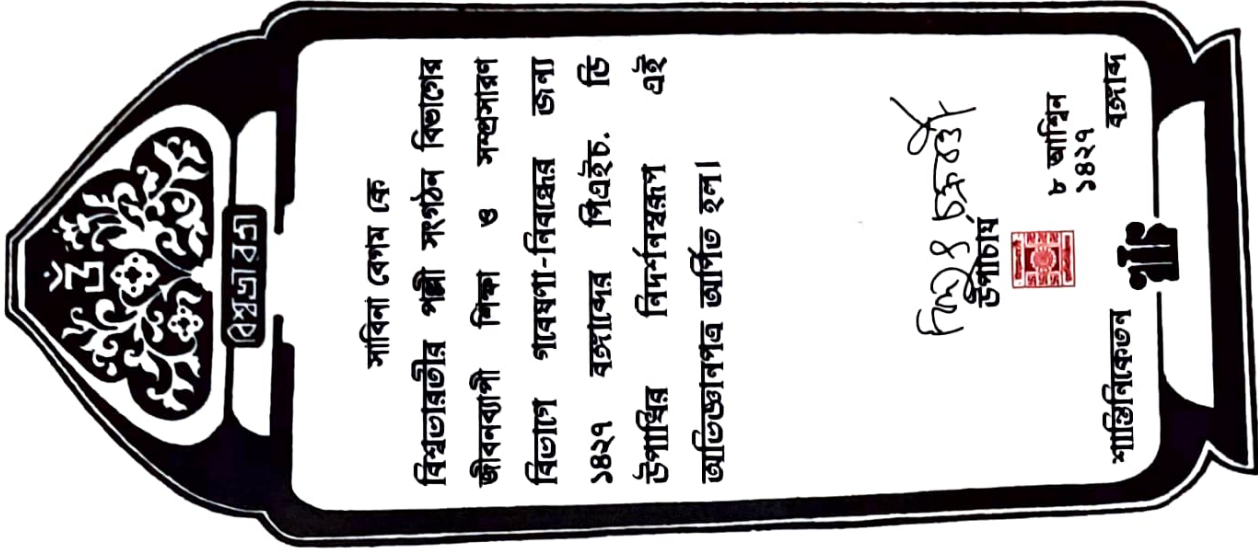 ওঁ
বিশ্বভারতী
সাবিনা বেগম কে
বিশ্বভারতীর পল্লী সংগঠন বিভাগের
জীবনব্যাপী শিক্ষা ও সম্প্রসারণ
বিভাগে গবেষণা-নিবন্ধের জন্য
১৪২৭ বঙ্গাব্দের পিএইচ. ডি
উপাধির নিদর্শনস্বরূপ এই
অভিজ্ঞানপত্র অর্পিত হল।
উপাচার্য
৮ আশ্বিন
১৪২৭
শান্তিনিকেতন বঙ্গাব্দ